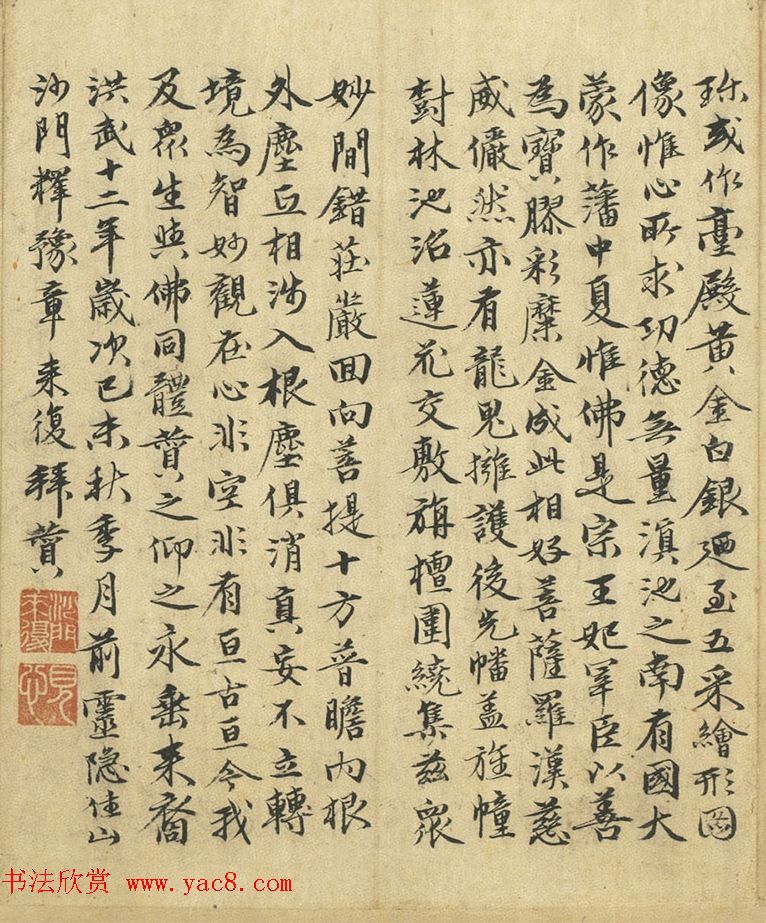 珎或作臺殿黄金白銀廼至五采繪形圖
像惟心所求功德無量滇池之南有國大
蒙作藩中夏惟佛是宗王妃宰臣以善
為寶膠彩糜金成此相好菩薩羅漢慈
威儼然亦有龍鬼擁護後先幡盖旌幢
樹林池沼蓮花交敷旃檀圍繞集茲眾
妙間錯莊嚴回向菩提十方普瞻内根
外塵互相涉入根塵俱消真妄不立轉
境為智妙觀在心非空非有亘古亘今我
及眾生與佛同體贊之仰之永垂来裔
洪武十二年歲次己未秋季月前靈隐住山
沙門釋豫章来復拜贊
沙門
来復
見
心
书法欣赏 www.yac8.com